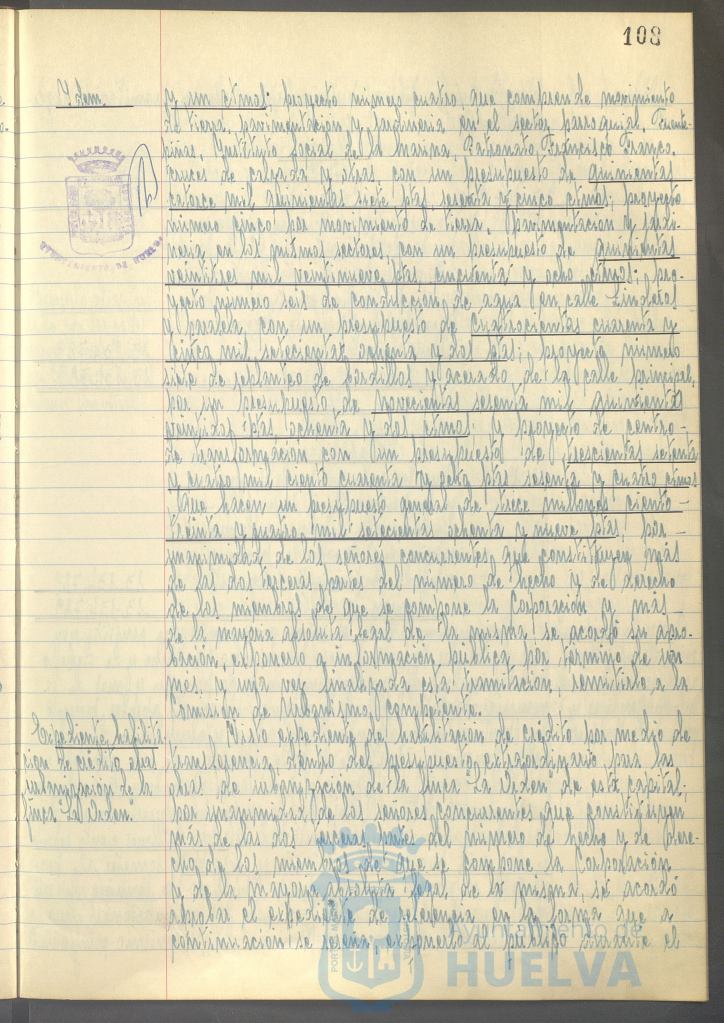 108
Ydem.
y un ctmos; proyecto número cuatro, que comprende movimiento
de tierra, pavimentación y jardinería en el sector parroquial, Fuente-
piñas, Ynstituto Social de la Marina, Patronato Francisco Franco.
cruces de calzada y otras, con un presupuesto de quinientas
catorce mil quinientas siete ptas. sesenta y cinco ctmos; proyecto
número cinco por movimiento de tierra, pavimentación y jardi-
nería en los mismos sectores, con un presupuesto de quinientas
veintitres mil veintinueve ptas. cincuenta y ocho ctmos; pro-
yecto número seis de conducción de agua en calle Linderos
y paralela, con un presupuesto de cuatrocientas cuarenta y
cinco mil setecientas ochenta y dos ptas; proyecto número
siete de replanteo de bordillos y acerado, de la calle principal,
por un presupuesto de novecientas sesenta mil quinientas
veintidos ptas. ochenta y dos ctmos. y proyecto de centro-
de transformación con un presupuesto de trescientas setenta
y cuatro mil ciento cuarenta y ocho ptas sesenta y cuatro ctmos
que hacen un presupuesto general de trece millones ciento-
treinta y cuatro mil setecientas ochenta y nueve ptas, por-
unanimidad de los señores concurrentes, que constituyen más
de las dos terceras partes del número de hecho y de derecho
de los miembros de que se compone la Corporación y más-
de la mayoría absoluta legal de la misma se acordó su apro-
bación, exponerlo a información pública por término de un
mes, y una vez finalizada esta tramitación, remitirlo a la
Comisión de Urbanismo competente.
Expediente habilita-
ción de crédito
urbanización de la
finca "La Orden".
Visto expediente de habilitación de crédito por medio de
transferencia dentro del presupuesto extraordinario para las
obras de urbanización de la finca "La Orden" de esta capital,
por unanimidad de los señores concurrentes que constituyen
más de las dos terceras partes del número de hecho y de dere-
cho de los miembros de que se compone la Corporación
y de la mayoría absoluta legal de la misma, se acordó
aprobar el expediente de referencia en la forma que a
continuación se reseña, exponerlo al público durante el
AYUNTAMIENTO DE HUELVA
Ayuntamiento de
HUELVA